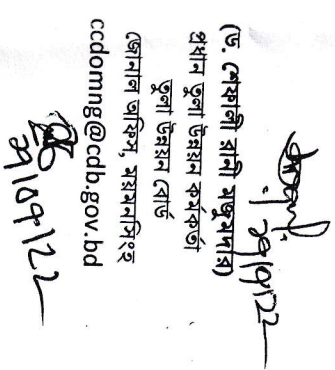 ২৮/৭/22
(ড. শেফালী রানী মজুমদার)
প্রধান তুলা উন্নয়ন কর্মকর্তা
তুলা উন্নয়ন বোর্ড
জোনাল অফিস, ময়মনসিংহ
ccdomng@cdb.gov.bd